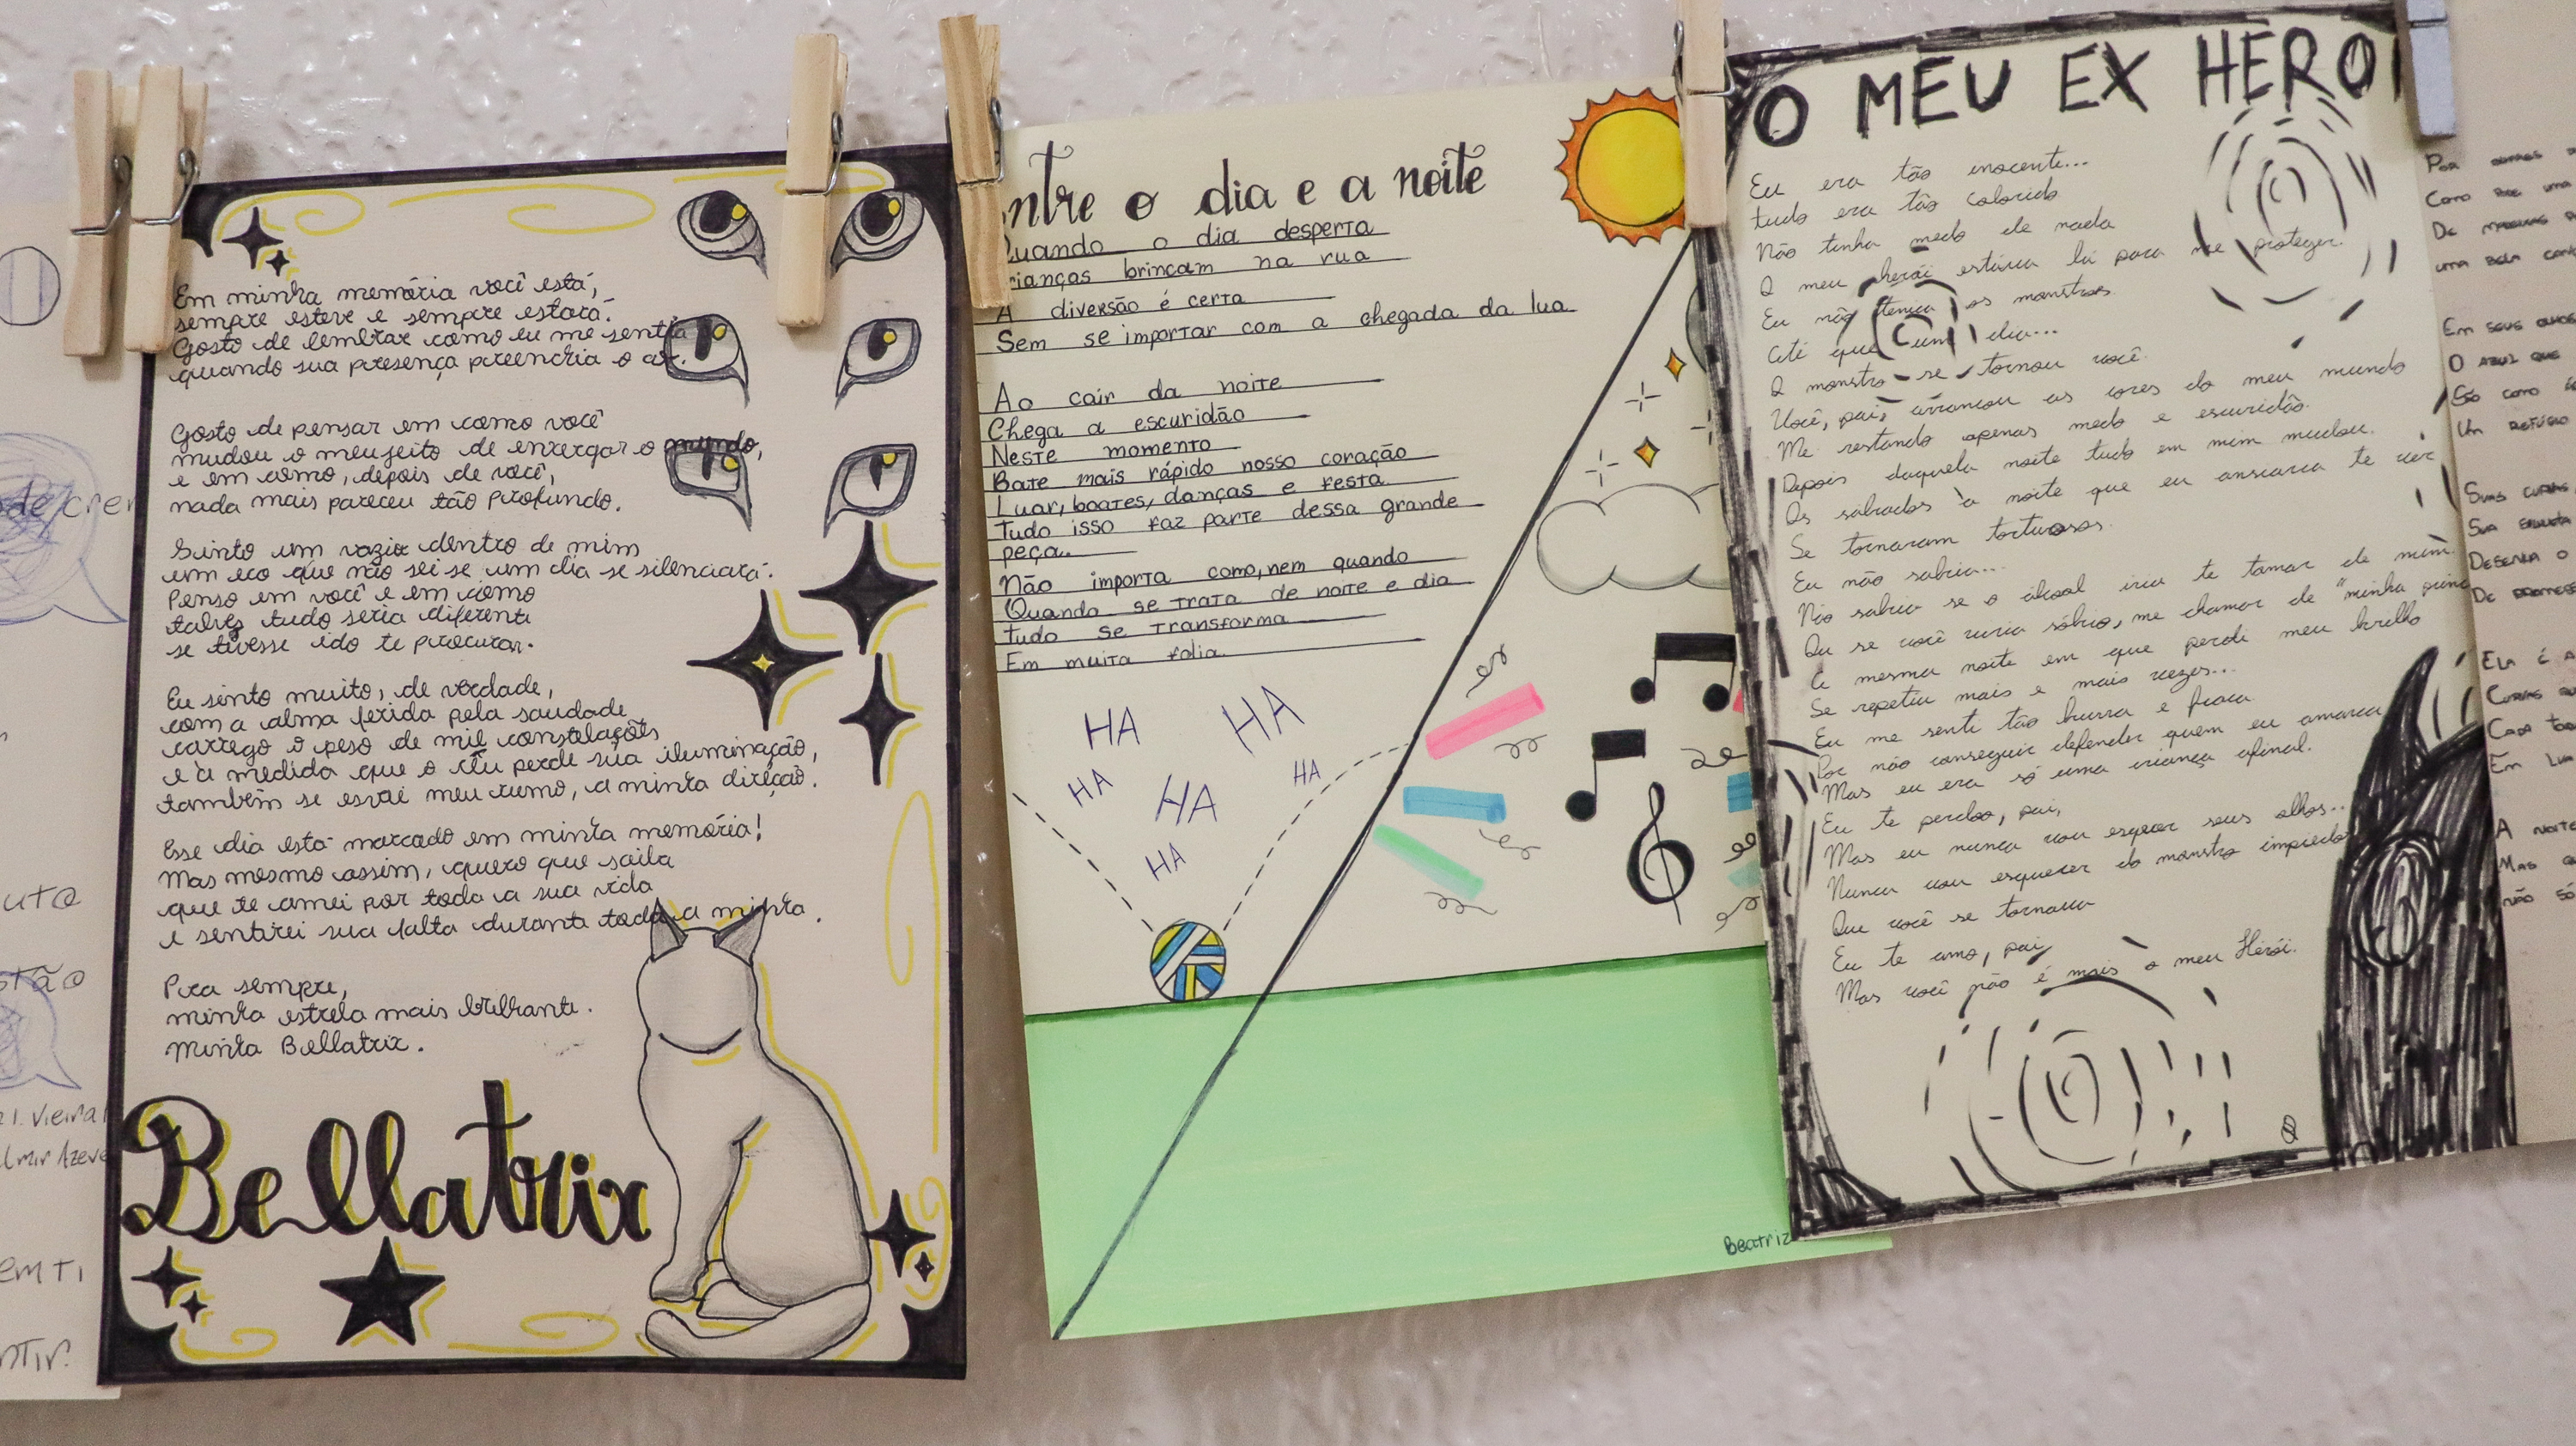 Em minha memória você está,
sempre esteve e sempre estará.
Gosto de lembrar como eu me sentia
quando sua presença preenchia o ar.
Gosto de pensar em como você
mudou o meu jeito de enxergar o mundo,
e em como, depois de você,
nada mais pareceu tão profundo.
Sinto um vazio dentro de mim
um eco que não sei se um dia se silenciará.
Penso em você e em como
talvez tudo seria diferente
se tivesse ido te procurar.
Eu sinto muito, de verdade,
com a alma ferida pela saudade
carrego o peso de mil constelações
e a medida que o céu perde sua iluminação,
também se esvai meu rumo, a minha direção.
Esse dia está marcado em minha memória!
Mas mesmo assim, quero que saiba
que te amei por toda a sua vida
e sentirei sua falta durante toda a minha.
Pra sempre,
minha estrela mais brilhante.
Minha Bellatrix.
Bellatrix
ntre o dia e a noite
Quando o dia desperta
rianças brincam na rua
A diversão é certa
Sem se importar com a chegada da lua
Ao cair da noite
Chega a escuridão
Neste momento
Bate mais rápido nosso coração
Luar, boates, danças e festa
Tudo isso faz parte dessa grande
peça..
Não importa como, nem quando
Quando se trata de noite e dia
Tudo se transforma
Em muita folia
HA HA
HA HA HA
HA
Beatriz
O MEU EX HERO
Eu era tão inocente...
tudo era tão colorido
Não tinha medo de nada
O meu herói estava lá para me proteger.
Eu não temia os monstros
Até que um dia...
O monstro se tornou você.
Você, pai, arrancou as cores do meu mundo
Me restando apenas medo e escuridão.
Depois daquela noite tudo em mim mudou.
Os sábados à noite que eu ansiava te ver
Se tornaram torturosos.
Eu não sabia...
Não sabia se o álcool iria te tomar de mim
Ou se você viria sóbrio, me chamar de "minha princ
A mesma noite em que perdi meu brilho
Se repetiu mais e mais vezes...
Eu me senti tão burra e fraca
Por não conseguir defender quem eu amava
Mas eu era só uma criança afinal.
Eu te perdoo, pai,
Mas eu nunca vou esquecer seus olhos...
Nunca vou esquecer do monstro impiedo
Que você se tornava
Eu te amo, pai
Mas você não é mais o meu Herói.
Por
Como
De
uma bela
Em seus olhos
O azul que
Só como
Um refúgio
Suas curvas
Sua
Desenha o
De
Ela é a
Curvas
Cada
Em
A noite
Mas
não só
de crer
uto
stão
Vieira
lmir Azeve
em ti
ntir.